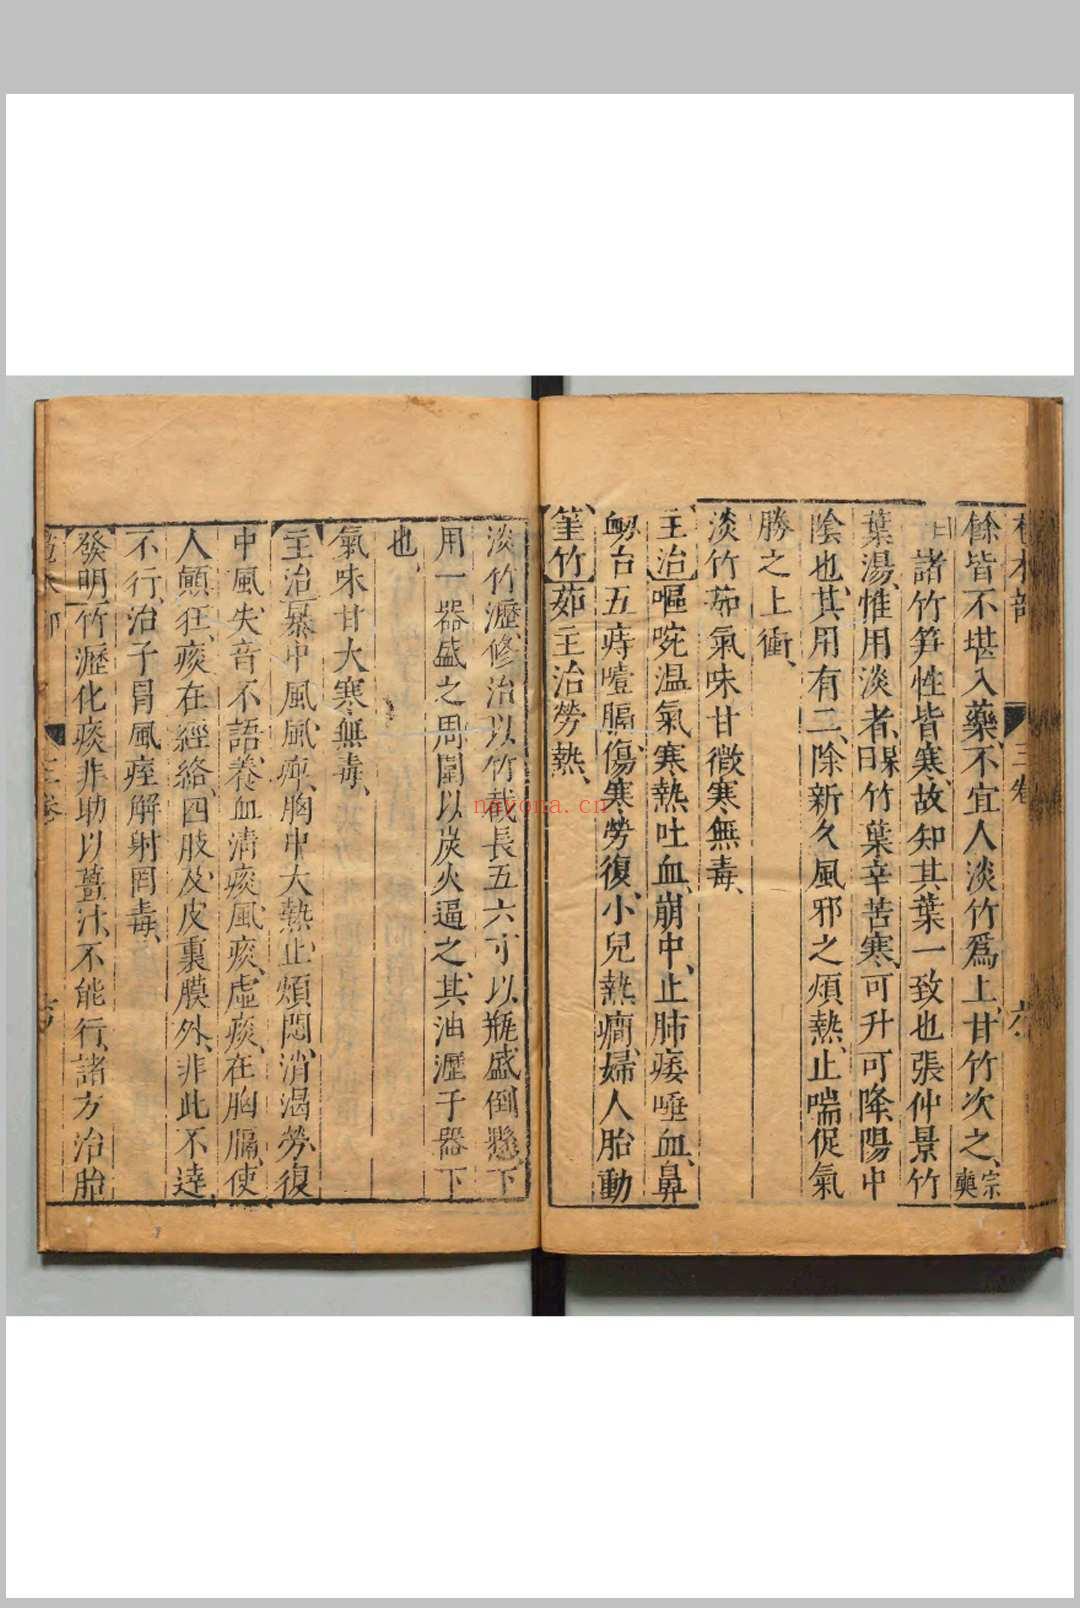 三卷
六
餘皆不堪入藥、不宜人淡竹爲上、甘竹次之、宗奭
曰諸竹笋性皆寒、故知其葉一致也張仲景竹
葉湯、惟用淡者、杲曰竹葉辛苦寒、可升可降陽中
陰也、其用有二、除新久風邪之煩熱、止喘促氣
勝之上衝、
淡竹茹氣味甘微寒無毒、
主治嘔啘温氣寒熱吐血、崩中、止肺痿唾血、鼻
衂治五痔噎膈、傷寒勞復、小兒熱癎、婦人胎動
筀竹茹主治勞熱、
淡竹瀝、修治以竹截長五六寸以瓶盛倒懸、下
用一器盛之周圍以炭火逼之、其油瀝于器下
也、
氣味甘大寒無毒、
主治暴中風風痺、胸中大熱止煩悶、消渴勞復
中風失音不語、養血清痰風痰、虛痰、在胸膈、使
人顚狂、痰在經絡、四肢及皮裏膜外、非此不達、
不行、治子冒風痙解射罔毒、
發明竹瀝化痰非助以薑汁、不能行、諸方治胎
三卷
nayona.cn